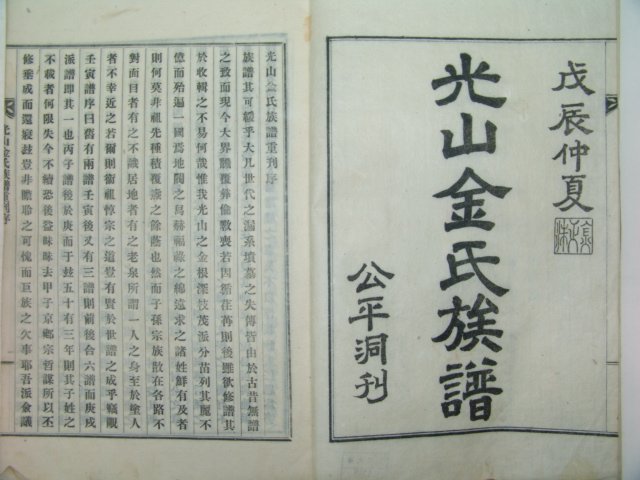 戊辰仲夏
光山金氏族譜
公平洞刊
光山金氏族譜重刋序
族譜其可緩乎大凡世代之漏系墳墓之失傳皆由於古昔無譜
之致而現今大界飜覆彛倫斁喪若因循荏苒則後雖欲修譜其
於收輯之不易何哉惟我光山之金根深枝茂派分苗列其麗不
億而殆遍一國爲地閥之烏赫福祿之綿遠求之諸姓鮮有及者
則何莫非祖先種積覆燾之餘蔭也然而子孫宗族散在各路不
對面目者有之不識居地者有之老泉所謂一人之身至於塗人
者不幸近之若爾則衛祖惇宗之道豈有賢於世譜之成乎竊覵
壬寅譜序曰舊有兩譜壬寅後又有三譜則前後合六譜而庚戌
派譜即其一也丙子譜後於庚而于玆五十有三年則其子姓之
不載者何限失今不續恐後益昧昧去甲子京鄕宗哲謀所以丕
修垂成而還寢玆豈非瞻聆之可愧而巨族之欠事耶吾派僉議
光山金氏族譜重刋序